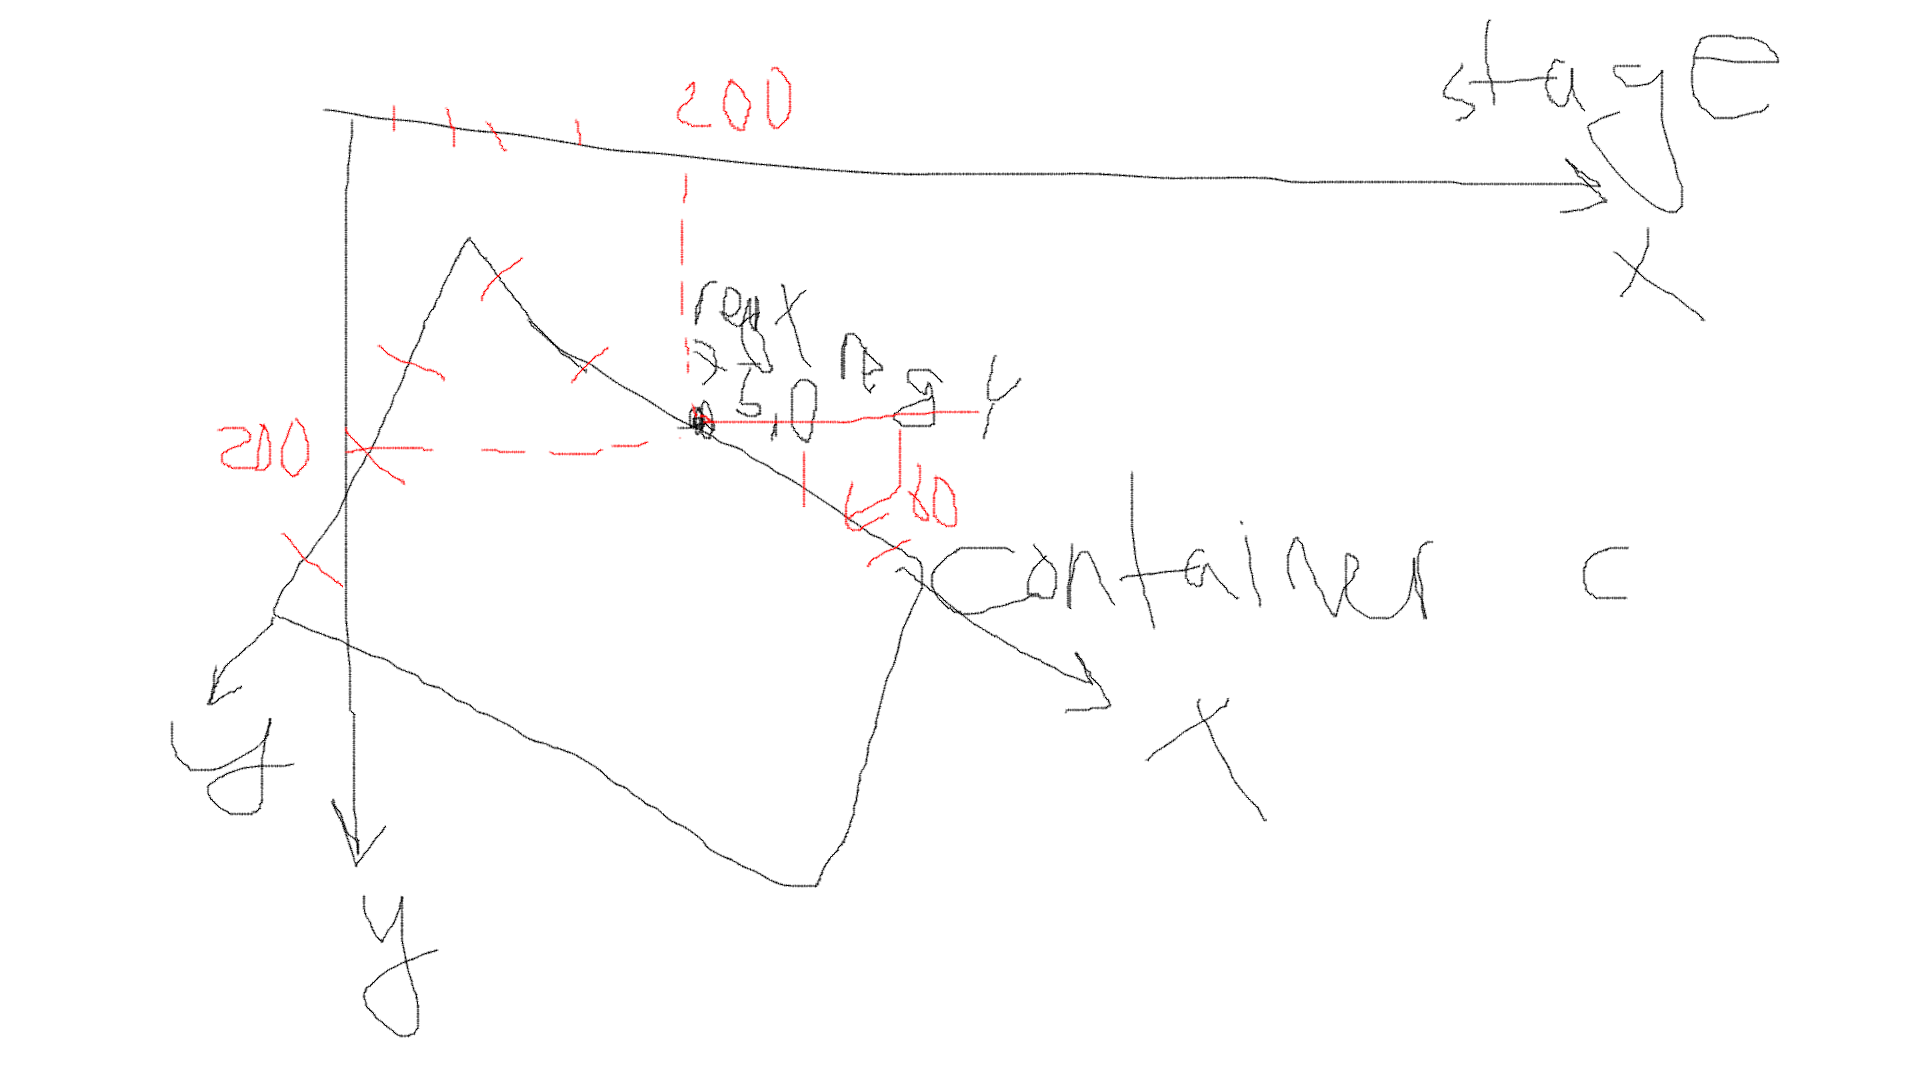 stage
200
x
regX regY
5,0
200
60
container c
x
y
y